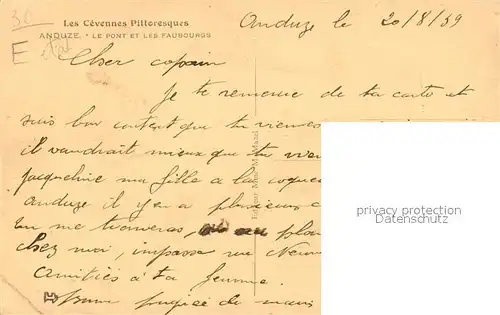 Les Cévennes Pittoresques
ANDUZE. - LE PONT ET LES FAUBOURGS
Anduze le 20/8/39
Cher copain
Je te remercie de ta carte et
suis bon content que tu viennes
il vaudrait mieux que tu
Jacqueline ma fille a la coque
Anduze il y en a plusieurs
tu me trouveras, ou au
chez moi, impasse rue Neuve
Amitiés à ta femme.
Bonne poignée de main
privacy protection
Datenschutz